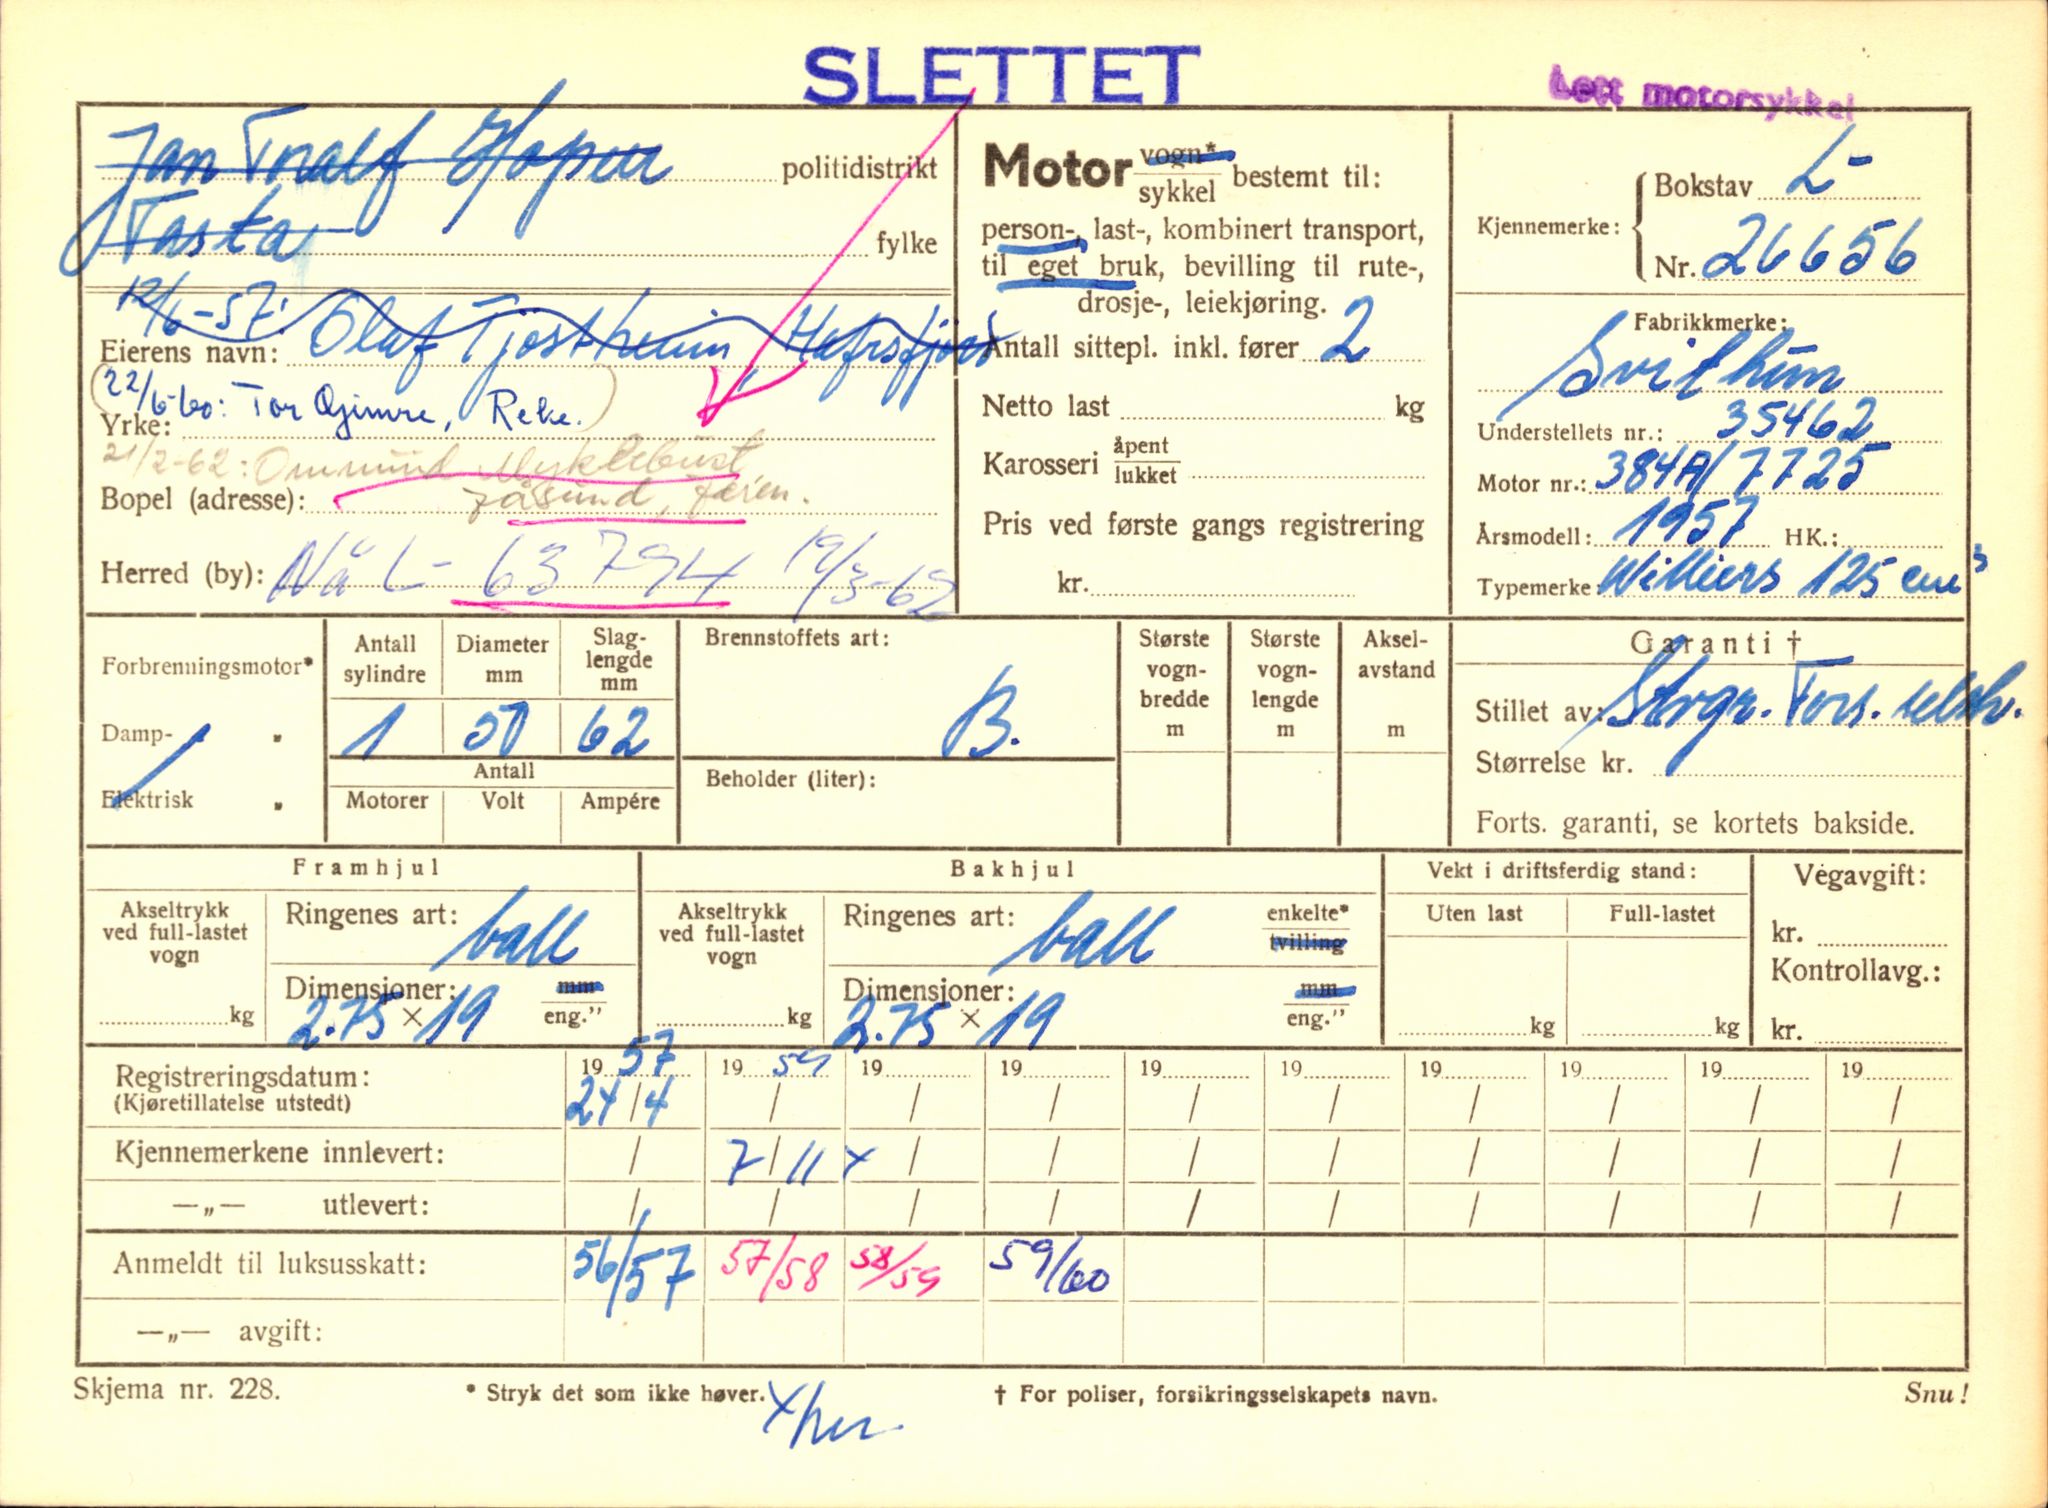 SLETTET
Lett motorsykkel
Jan Tralf politidistrikt
Tasta fylke
12/6-57: Olaf Tjøstheim, Hafrsfjord
Eierens navn:
(22/6-60: Tor Gjimre, Reke.)
Yrke:
21/2-62: Ommund Myklebust
Bopel (adresse): Jåsund, Jæren.
Herred (by): Nå L- 63794 19/3-62
Motor vogn*/sykkel bestemt til:
person-, last-, kombinert transport,
til eget bruk, bevilling til rute-,
drosje-, leiekjøring.
Antall sittepl. inkl. fører 2
Netto last kg
Karosseri åpent/lukket
Pris ved første gangs registrering
kr.
Kjennemerke: Bokstav L-
Nr. 26656
Fabrikkmerke:
Svithun
Understellets nr.: 35462
Motor nr.: 384A/7725
Årsmodell: 1957 HK.:
Typemerke: Williers 125 cm³
Forbrenningsmotor*
Damp- "
Elektrisk "
Antall sylindre Diameter mm Slaglengde mm
1 50 62
Antall
Motorer Volt Ampére
Brennstoffets art:
B.
Beholder (liter):
Største vognbredde m
Største vognlengde m
Akselavstand m
Garanti †
Stillet av: Storgr. Fors. selsk.
Størrelse kr.
Forts. garanti, se kortets bakside.
Framhjul
Akseltrykk ved full-lastet vogn
kg
Ringenes art: ball
Dimensjoner: mm
2.75 × 19 eng."
Bakhjul
Akseltrykk ved full-lastet vogn
kg
Ringenes art: ball enkelte* tvilling
Dimensjoner: mm
2.75 × 19 eng."
Vekt i driftsferdig stand:
Uten last Full-lastet
kg kg
Vegavgift:
kr.
Kontrollavg.:
kr.
Registreringsdatum: 19 57 19 59 19 19 19 19 19 19 19 19
(Kjøretillatelse utstedt) 24/4 / / / / / / / / /
Kjennemerkene innlevert: / 7/11 x / / / / / / / /
—„— utlevert: / / / / / / / / / /
Anmeldt til luksusskatt: 56/57 57/58 58/59 59/60
—„— avgift:
Skjema nr. 228. * Stryk det som ikke høver. † For poliser, forsikringsselskapets navn. Snu!